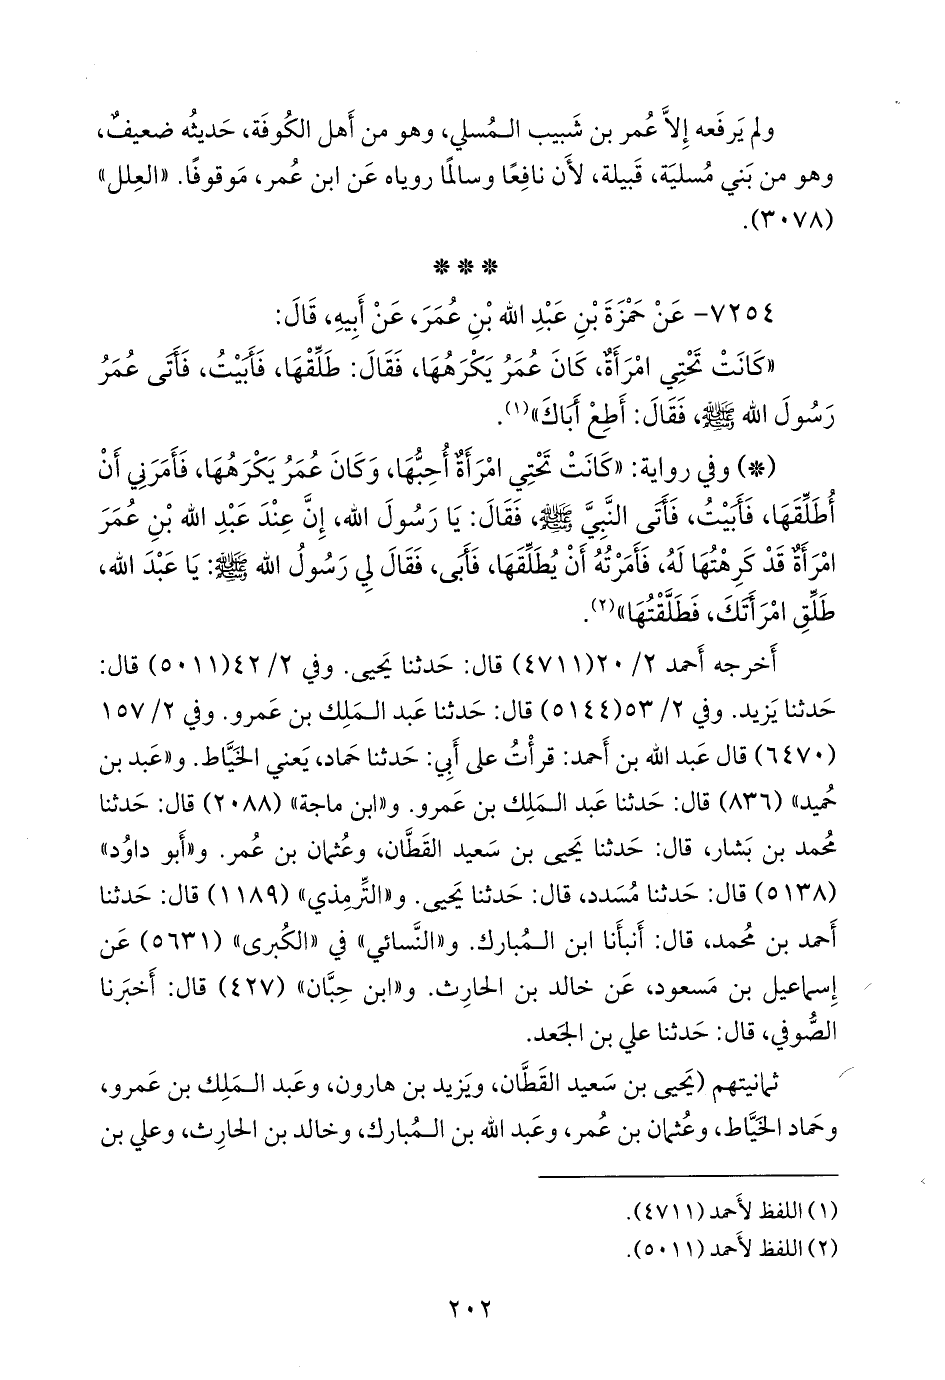 ولم يَرفَعه إِلاَّ عُمر بن شَبيب الـمُسلي، وهو من أَهل الكُوفَة، حَديثُه ضعيفٌ،
وهو من بَني مُسليَة، قَبيلة، لأَن نافِعًا وسالمًا روياه عَن ابن عُمر، مَوقوفًا. «العِلل»
(٣٠٧٨).
* * *
٧٢٥٤- عَنْ حَمْزَةَ بْنِ عَبْدِ الله بْنِ عُمَرَ، عَنْ أَبِيهِ، قَالَ:
«كَانَتْ تَحْتِي امْرَأَةٌ، كَانَ عُمَرُ يَكْرَهُهَا، فَقَالَ: طَلِّقْهَا، فَأَبَيْتُ، فَأَتَى عُمَرُ
رَسُولَ الله ﷺ، فَقَالَ: أَطِعْ أَبَاكَ»(١).
(*) وفي رواية: «كَانَتْ تَحْتِي امْرَأَةٌ أُحِبُّهَا، وَكَانَ عُمَرُ يَكْرَهُهَا، فَأَمَرَنِي أَنْ
أُطَلِّقَهَا، فَأَبَيْتُ، فَأَتَى النَّبِيَّ ﷺ، فَقَالَ: يَا رَسُولَ الله، إِنَّ عِنْدَ عَبْدِ الله بْنِ عُمَرَ
امْرَأَةٌ قَدْ كَرِهْتُهَا لَهُ، فَأَمَرْتُهُ أَنْ يُطَلِّقَهَا، فَأَبَى، فَقَالَ لِي رَسُولُ الله ﷺ: يَا عَبْدَ الله،
طَلِّقِ امْرَأَتَكَ، فَطَلَّقْتُهَا»(٢).
أَخرجه أَحمد ٢/ ٢٠(٤٧١١) قال: حَدثنا يَحيى. وفي ٢/ ٤٢(٥٠١١) قال:
حَدثنا يَزيد. وفي ٢/ ٥٣(٥١٤٤) قال: حَدثنا عَبد الـمَلِك بن عَمرو. وفي ٢/ ١٥٧
(٦٤٧٠) قال عَبد الله بن أَحمد: قرأْتُ على أَبي: حَدثنا حَماد، يَعني الخَيَّاط. و«عَبد بن
حُميد» (٨٣٦) قال: حَدثنا عَبد الـمَلِك بن عَمرو. و«ابن ماجة» (٢٠٨٨) قال: حَدثنا
مُحمد بن بَشار، قال: حَدثنا يَحيى بن سَعيد القَطَّان، وعُثمان بن عُمر. و«أَبو داوُد»
(٥١٣٨) قال: حَدثنا مُسَدد، قال: حَدثنا يَحيى. و«التِّرمِذي» (١١٨٩) قال: حَدثنا
أَحمد بن مُحمد، قال: أَنبأَنا ابن الـمُبارك. و«النَّسائي» في «الكُبرى» (٥٦٣١) عَن
إِسماعيل بن مَسعود، عَن خالد بن الحارِث. و«ابن حِبَّان» (٤٢٧) قال: أَخبَرنا
الصُّوفي، قال: حَدثنا علي بن الجَعد.
ثمانيتهم (يَحيى بن سَعيد القَطَّان، ويَزيد بن هارون، وعَبد الـمَلِك بن عَمرو،
وحَماد الخَيَّاط، وعُثمان بن عُمر، وعَبد الله بن الـمُبارك، وخالد بن الحارِث، وعلي بن
(١) اللفظ لأَحمد (٤٧١١).
(٢) اللفظ لأَحمد (٥٠١١).
٢٠٢